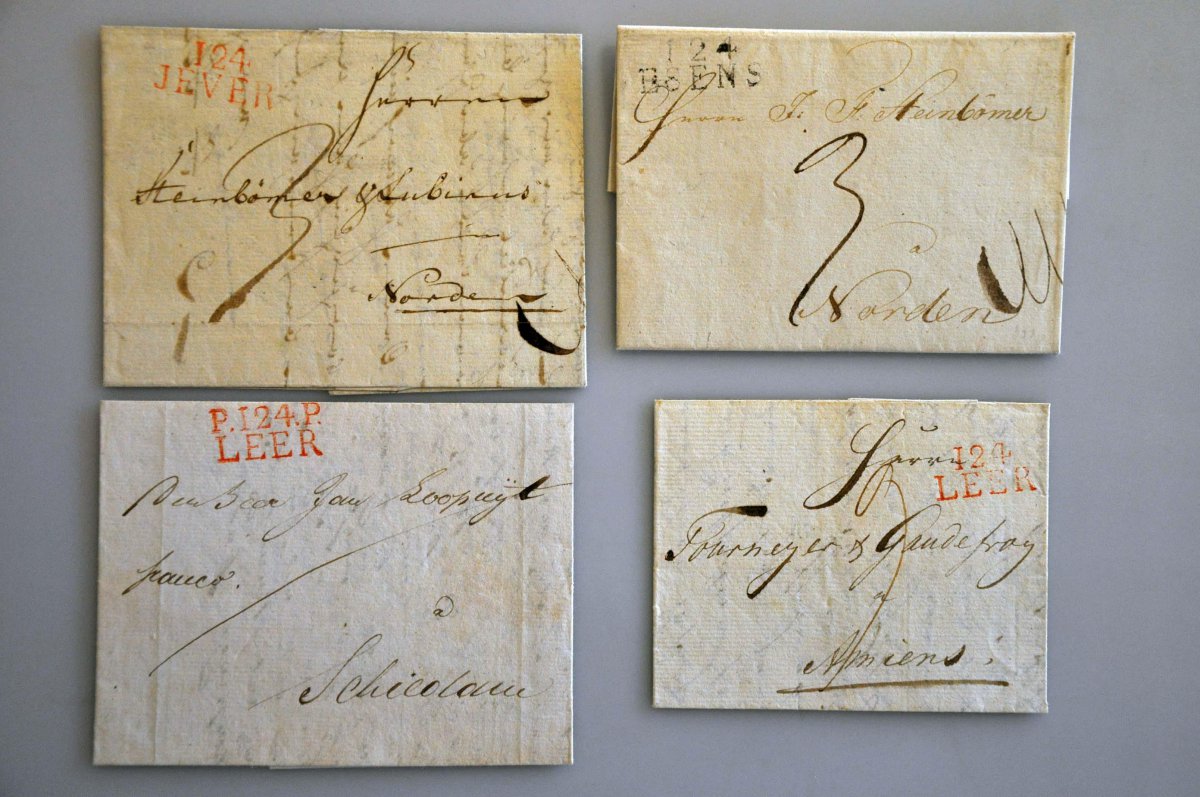 124
JEVER
Herren
Steinbömer & Lubinus
Norden
124
ESENS
Herrn J. F. Steinbömer
3
a
Norden
P.124.P.
LEER
Den Heer Jan Loopuÿt
franco.
a
Schiedam
124
LEER
Herrn
Tourneyer & Gaudefroy
a
Amiens.